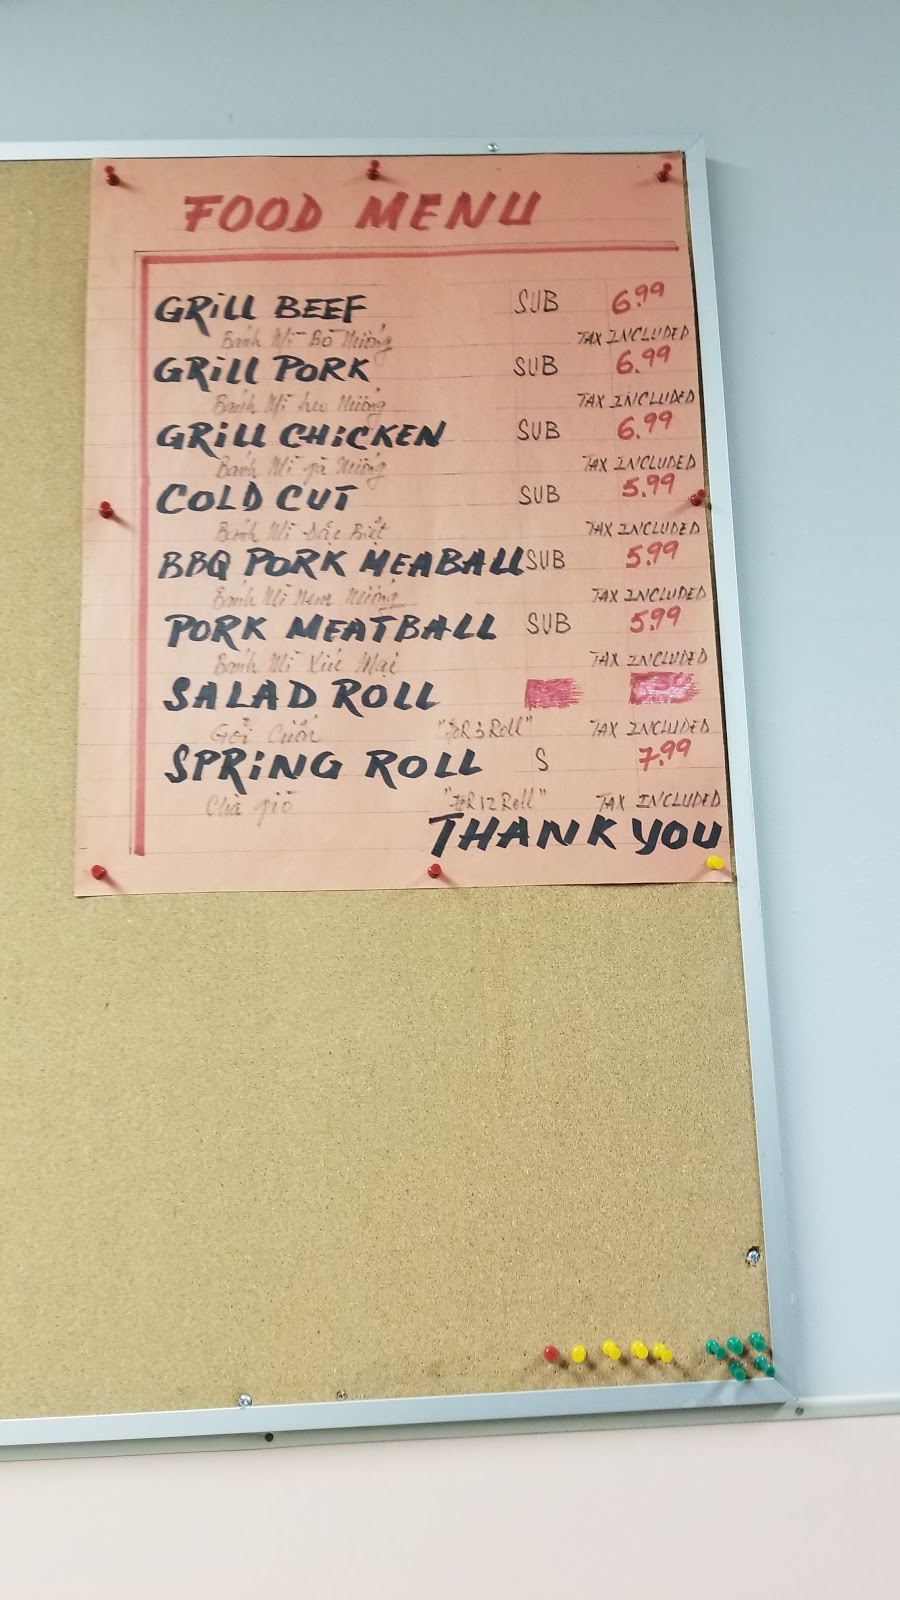 FOOD MENU
GRILL BEEF SUB 6.99
Bánh Mì Bò Nướng TAX INCLUDED
GRILL PORK SUB 6.99
Bánh Mì heo Nướng TAX INCLUDED
GRILL CHICKEN SUB 6.99
Bánh Mì gà Nướng TAX INCLUDED
COLD CUT SUB 5.99
Bánh Mì Đặc Biệt TAX INCLUDED
BBQ PORK MEABALL SUB 5.99
Bánh Mì Nem Nướng TAX INCLUDED
PORK MEATBALL SUB 5.99
Bánh Mì Xíu Mại TAX INCLUDED
SALAD ROLL
Gỏi Cuốn "FOR 3 Roll" TAX INCLUDED
SPRING ROLL S 7.99
Chả giò "FOR 12 Roll" TAX INCLUDED
THANK YOU